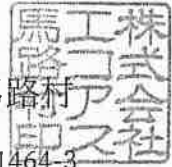 株式会社
エコアス
馬路村印
路村
1464-3